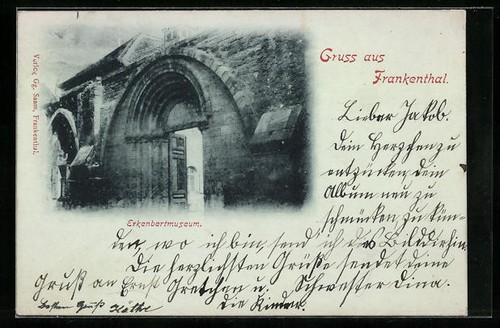 Gruss aus
Frankenthal.
Verlag Gg. Saam, Frankenthal.
Erkenbertmuseum.
Lieber Jakob.
Dein Herzchen zu
entzücken dein
Album neu zu
schmücken zu kün-
den, wo ich bin, send ich das Bild dir hin.
Die herzlichsten Grüße sendet deine
Gruß an Ernst Gretchen u. Schwester Dina.
die Kinder.
Besten Gruß Käthe